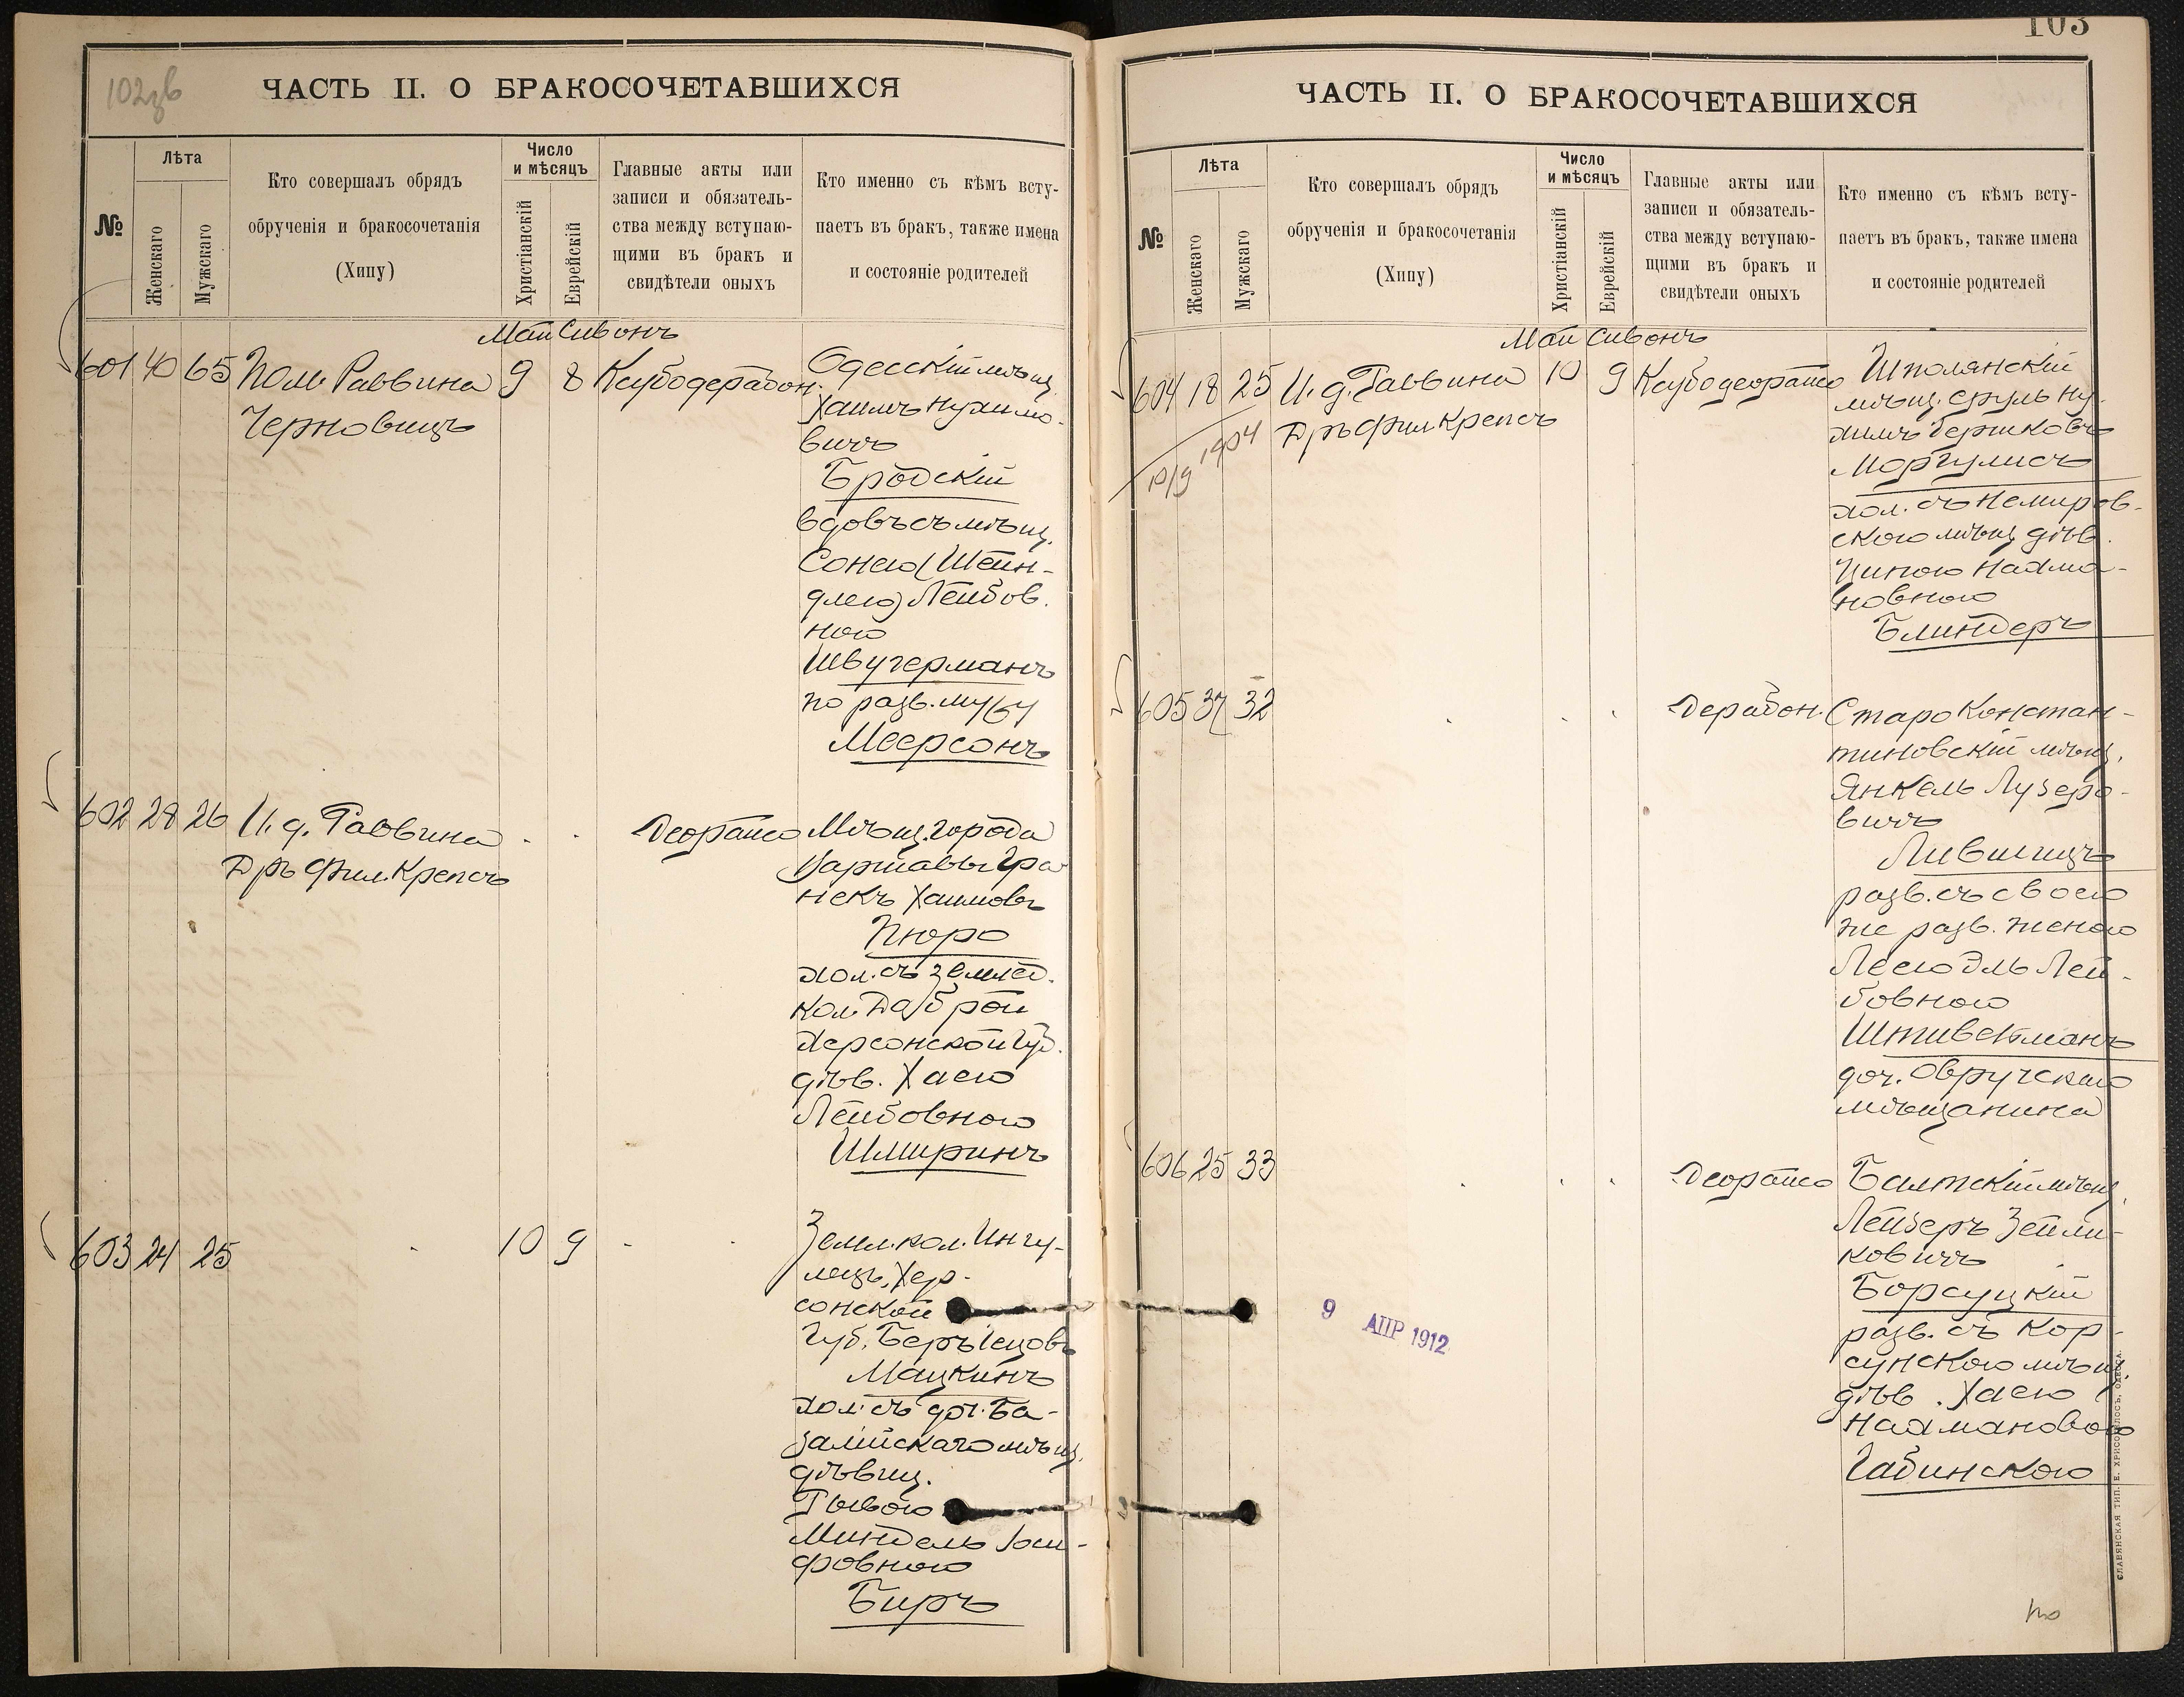 102зв
ЧАСТЬ II. О БРАКОСОЧЕТАВШИХСЯ
№
Лѣта
Женскаго
Мужскаго
Кто совершалъ обрядъ
обрученія и бракосочетанія
(Хипу)
Число
и мѣсяцъ
Христіанскій
Еврейскій
Главные акты или
записи и обязатель-
ства между вступаю-
щими въ бракъ и
свидѣтели оныхъ
Кто именно съ кѣмъ всту-
паетъ въ бракъ, также имена
и состояніе родителей
Май Сивонъ
601 40 65 Пом. Раввина 9 8 Ксубодерабон.
Черновицъ
Одесскій мѣщ.
Хаимъ Нухимо-
вичъ
Бродскій
вдовъ съ мѣщ.
Сонею (Шейн-
длею) Лейбов.
ною
Швугерманъ
по разв. мужу
Меерсонъ
602 28 26 И. д. Раввина . . Деорайсо
Дръ Фил. Крепсъ
Мѣщ. города
Варшавы Гра
некъ Хаимовъ
Пюро
хол. съ землед.
кол. Доброй
Херсонской Губ.
дѣв. Хаею
Лейбовною
Шмиринъ
603 24 25 . 10 9 . .
Земл. кол. Ингу-
лецъ, Хер-
сонской
Губ. Беръ Іецовъ
Мацкинъ
хол. съ доч. Ба-
залійскаго мѣщ.
дѣвиц.
Миндель Іоси-
фовною
Биръ
103
ЧАСТЬ II. О БРАКОСОЧЕТАВШИХСЯ
№
Лѣта
Женскаго
Мужскаго
Кто совершалъ обрядъ
обрученія и бракосочетанія
(Хипу)
Число
и мѣсяцъ
Христіанскій
Еврейскій
Главные акты или
записи и обязатель-
ства между вступаю-
щими въ бракъ и
свидѣтели оныхъ
Кто именно съ кѣмъ всту-
паетъ въ бракъ, также имена
и состояніе родителей
Май Сивонъ
604 18 25 И. д. Раввина 10 9 Ксубодеорайсо
10/9 1904
Дръ Фил Крепсъ
Шполянскій
мѣщ. Сруль Ну-
химъ Берковъ
Моргулисъ
хол. съ Немиров-
скою мѣщ. дѣв.
Ципою Нахма-
новною
Блиндеръ
605 37 32 . . . Дерабон.
Староконстан-
тиновскій мѣщ.
Янкель Лузеро-
вичъ
Лившицъ
разв. съ своею
же разв. женою
Леею Эль Лей-
бовною
Штивельманъ
доч. Овручскаго
мѣщанина
606 25 33 . . . Деорайсо
Балтскій мѣщ.
Лейзеръ Зейли-
ковичъ
Борсуцкій
разв. съ Кор-
сунскою мѣщ.
дѣв. Хаею
Нахмановою
Габинскою
9 АПР 1912
СЛАВЯНСКАЯ ТИП. Е. ХРИСОГЕЛОСЪ, ОДЕССА.